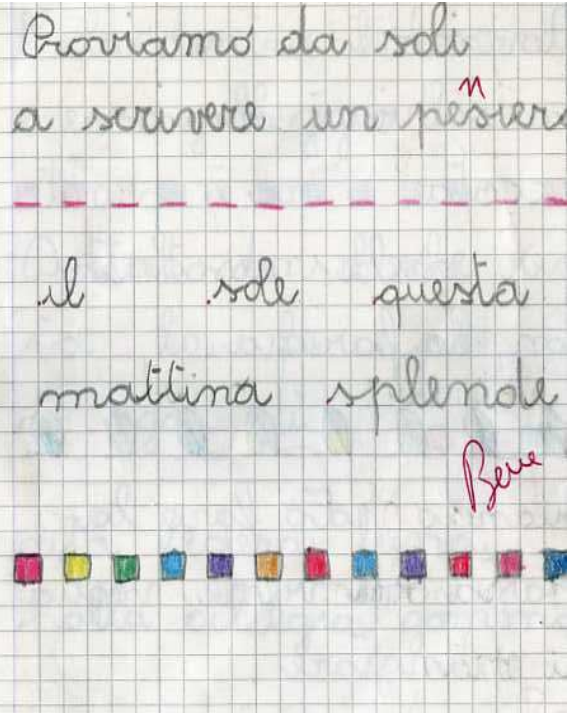 Proviamo da soli
a scrivere un pensiero
il sole questa
mattina splende
Bene